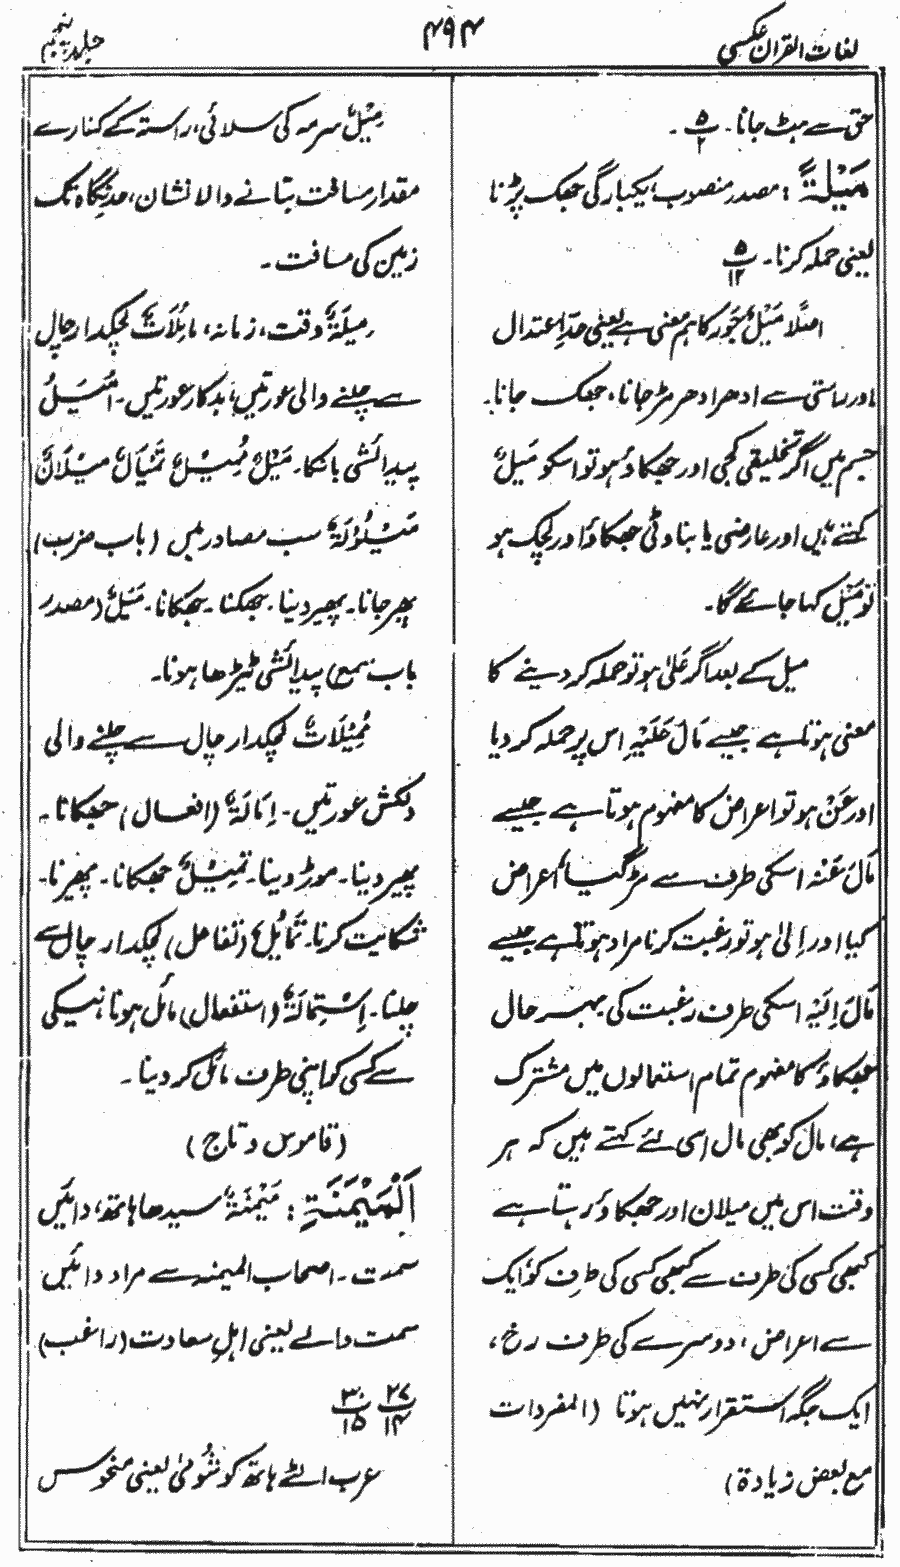 لغات القرآن عکسی
۴۹۴
جلد پنجم
حق سے ہٹ جانا۔ پ ۵ ۲ ۔
مَيْلَةً : مصدر منصوب، یکبارگی جھک پڑنا
یعنی حملہ کرنا۔ پ ۵ ۱۲
اصلًا مَيْلٌ جَوْر کا ہم معنی ہے یعنی حدِّ اعتدال
اور راستی سے ادھر ادھر مڑ جانا، جھک جانا۔
جسم میں اگر تخلیقی کجی اور جھکاؤ ہو تو اسکو مَيَلٌ
کہتے ہیں اور عارضی یا بناوٹی جھکاؤ اور لچک ہو
تو مَيْل کہا جائے گا۔
میل کے بعد اگر عَلیٰ ہو تو حملہ کر دینے کا
معنی ہوتا ہے جیسے مَالَ عَلَيْهِ اس پر حملہ کر دیا
اور عَنْ ہو تو اعراض کا مفہوم ہوتا ہے جیسے
مَالَ عَنْهُ اسکی طرف سے مڑ گیا، اعراض
کیا اور اِلیٰ ہو تو رغبت کرنا مراد ہوتا ہے جیسے
مَالَ اِلَيْهِ اسکی طرف رغبت کی بہر حال
جھکاؤ کا مفہوم تمام استعمالوں میں مشترک
ہے، مال کو بھی مال اسی لئے کہتے ہیں کہ ہر
وقت اس میں میلان اور جھکاؤ رہتا ہے
کبھی کسی کی طرف سے کبھی کسی کی طرف کو ایک
سے اعراض، دوسرے کی طرف رخ،
ایک جگہ استقرار نہیں ہوتا (المفردات
مع بعض زیادۃ)
مِيْلٌ سرمہ کی سلائی، راستہ کے کنارے
مقدار مسافت بتانے والا نشان، حدِ نگاہ تک
زمین کی مسافت۔
مِيلَةٌ وقت، زمانہ، مائِلَاتٌ لچکدار چال
سے چلنے والی عورتیں، بدکار عورتیں۔ اَمْيَلُ
پیدائشی بانکا۔ مَيْلٌ مَمِيْلٌ تَمْيَالٌ مَيَلَانٌ
مَيْلُوْلَةٌ سب مصادر ہیں (باب ضرب)
پھر جانا۔ پھیر دینا۔ جھکنا۔ جھکانا۔ مَيَلٌ (مصدر
باب سمع) پیدائشی ٹیڑھا ہونا۔
مُمِيْلَاتٌ لچکدار چال سے چلنے والی
دلکش عورتیں۔ اِمَالَةٌ (افعال) جھکانا۔
پھیر دینا۔ موڑ دینا۔ تَمْيِيْلٌ جھکانا۔ پھیرنا۔
شکایت کرنا۔ تَمَايُلٌ (تفاعل) لچکدار چال سے
چلنا۔ اِسْتِمَالَةٌ (استفعال) مائل ہونا، نیکی
سے کسی کو اپنی طرف مائل کر دینا۔
(قاموس و تاج)
اَلْمَيْمَنَةِ : مَيْمَنَةٌ، سیدھا ہاتھ، دائیں
سمت۔ اصحاب المیمنہ سے مراد دائیں
سمت والے یعنی اہلِ سعادت (راغب)
۲۷ ۱۴ ۳۰ ۱۵
عرب الٹے ہاتھ کو شُومیٰ یعنی منحوس